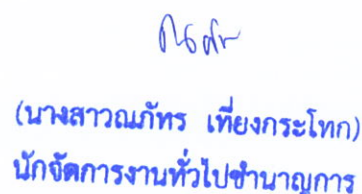 (นางสาวณภัทร เที่ยงกระโทก)
นักจัดการงานทั่วไปชำนาญการ